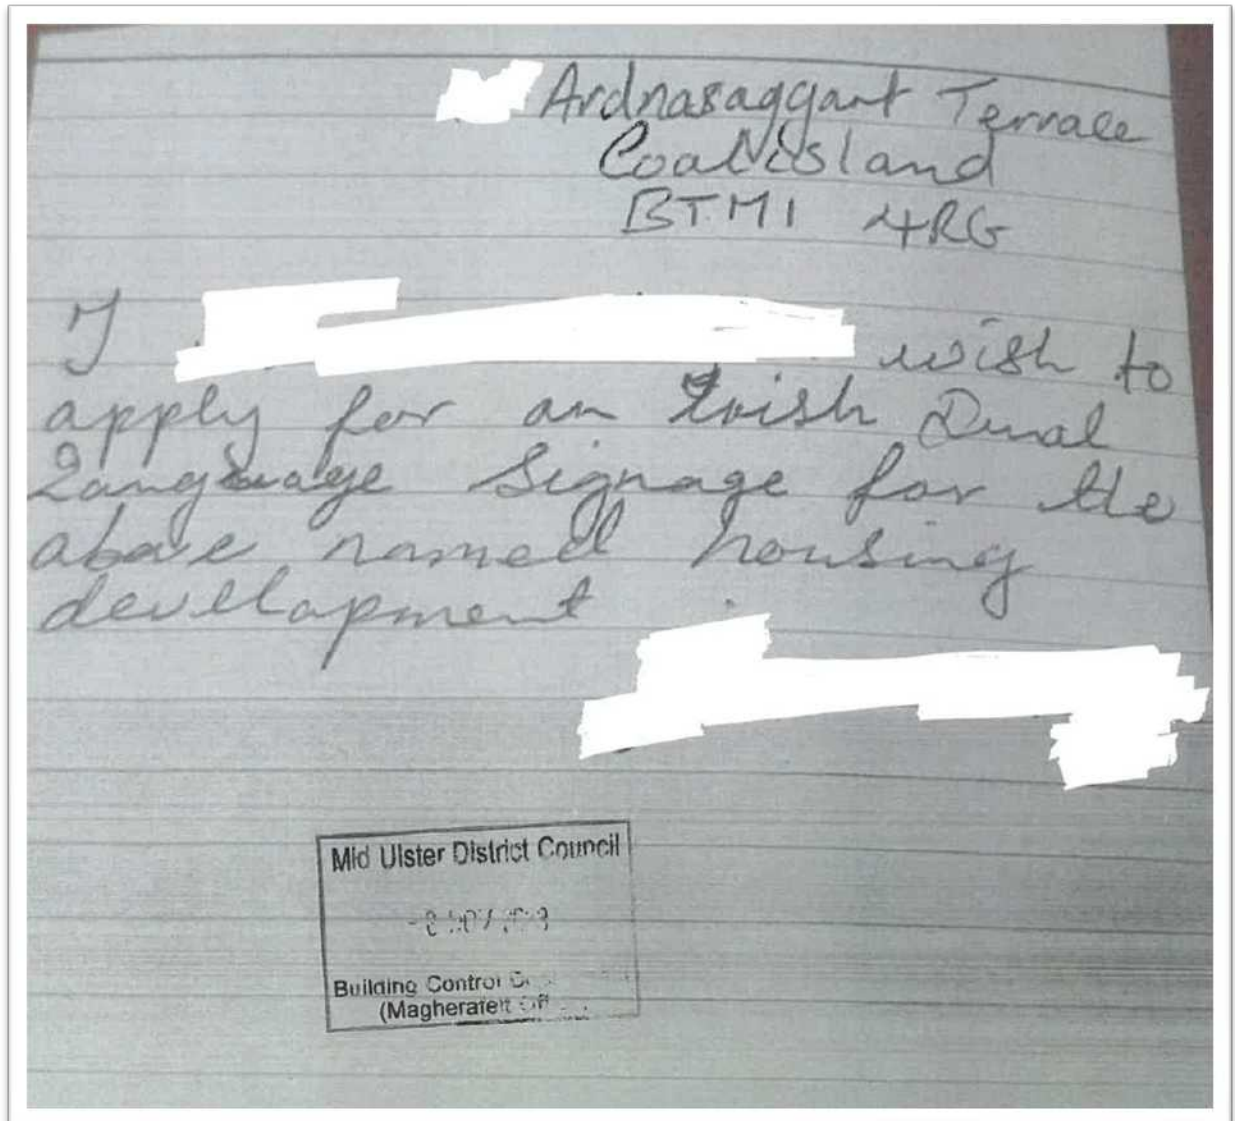 Ardnasaggart Terrace
Coalisland
BT71 4RG
I wish to
apply for an Irish Dual
Language Signage for the
above named housing
development.
Mid Ulster District Council
Building Control
(Magherafelt